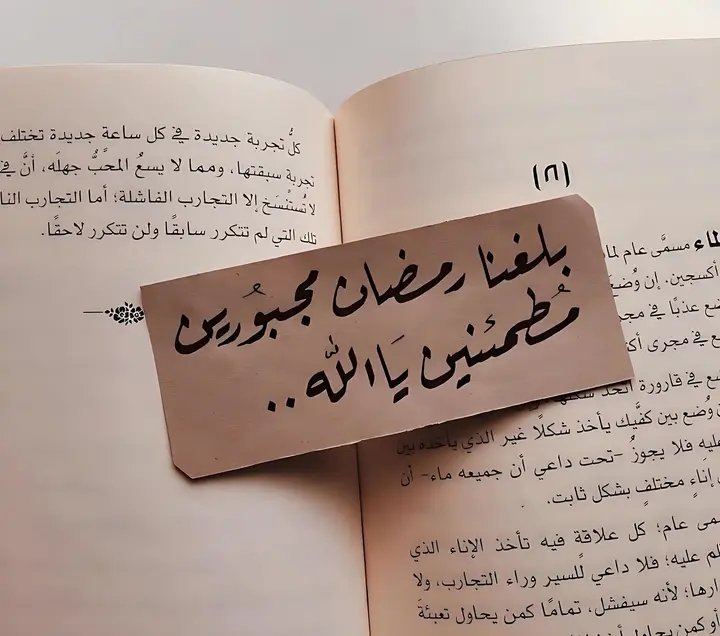 بلغنا رمضان مجبُورين
مُطمئنين يَا الله..
(٨١)
مسمَّى عام لما
أكسجين. إن
عذبًا في
في مجرى
في قارورة اتخذ
وُضع بين كفَّيك يأخذ شكلًا غير الذي يأخذه بين
فلا يجوزُ -تحت داعي أن جميعه ماء- أن
إناءٍ مختلفٍ بشكل ثابت.
عام؛ كل علاقةٍ فيه تأخذ الإناء الذي
عليه؛ فلا داعي للسير وراء التجارب، ولا
لأنه سيفشل، تمامًا كمن يحاول تعبئةَ
أو كمن يحاول
كلُّ تجربة جديدة في كل ساعةٍ جديدة تختلف
تجربة سبقتها، ومما لا يسعُ المحبُّ جهلَه، أنَّ في
لا تُستنْسَخ إلا التجارب الفاشلة؛ أما التجارب
تلك التي لم تتكرر سابقًا ولن تتكرر لاحقًا.